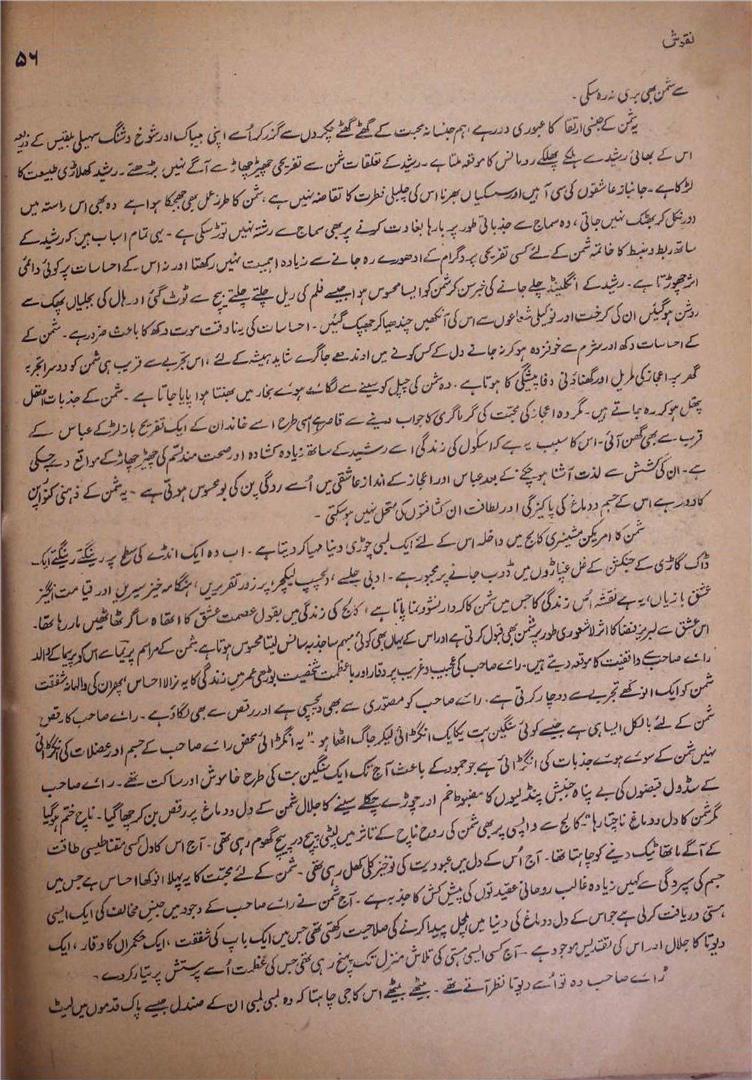 نقوش
۵۶
سے شمن بھی بری نہ رہ سکی ۔
یہ شمن کے جنسی ارتقا کا عبوری دور ہے، ہم جنسانہ محبت کے گھٹے گھٹے چکروں سے گزر کر اُسے اپنی بیباک اور شوخ و شنگ سہیلی بلقیس کے ذریعہ
اس کے بھائی رشید سے ہلکے پھلکے رومانس کا موقعہ ملتا ہے ۔ رشید کے تعلقات شمن سے تفریحی چھیڑ چھاڑ سے آگے نہیں بڑھتے ۔ رشید کھلاڑی طبیعت کا
لڑکا ہے ۔ جانبازانہ عاشقوں کی سی آہیں اور سسکیاں بھرنا اس کی چلبلی فطرت کا تقاضہ نہیں ہے ، شمن کا طرز عمل بھی جھجکا ہوا ہے وہ بھی اس راستہ میں
دور نکل کر بھٹک نہیں جاتی ، وہ سماج سے جذباتی طور پر بارہا بغاوت کرنے پر بھی سماج سے رشتہ نہیں توڑ سکی ہے ۔ یہی تمام اسباب ہیں کہ رشید کے
ساتھ ربط و ضبط کا خاتمہ شمن کے لئے کسی تفریحی پروگرام کے ادھورے رہ جانے سے زیادہ اہمیت نہیں رکھتا اور نہ اس کے احساسات پر کوئی دائمی
اثر چھوڑتا ہے ۔ رشید کے انگلینڈ چلے جانے کی خبر سن کر شمن کو ایسا محسوس ہوا جیسے فلم کی ریل چلتے چلتے بیچ سے ٹوٹ گئی اور ہال کی بجلیاں بھک سے
روشن ہو گئیں ان کی کرخت اور نوکیلی شعاعوں سے اس کی آنکھیں چندھیا کر جھپک گئیں ۔ احساسات کی بے وقت موت دکھ کا باعث ضرور ہے ۔ شمن کے
کے احساسات دکھ اور شرم سے خوفزدہ ہو کر نہ جانے دل کے کس کونے میں اوندھے جاگرے شاید ہمیشہ کے لئے ، اس تجربے سے قریب ہی شمن کو دوسرا تجربہ
گھر پہ اعجاز کی طویل اور گھناؤنی وفا پیشگی کا ہوتا ہے ۔ وہ شمن کی چپل کو سینے سے لگائے ہوئے بخار میں بھنتا ہوا پایا جاتا ہے ۔ شمن کے جذبات
پتھل ہو کر رہ جاتے ہیں ۔ مگر وہ اعجاز کی محبت کی گرما گری کا جواب دینے سے قاصر ہے اسی طرح اسے خاندان کے ایک تفریح باز لڑکے عباس کے
قرب سے بھی گھن آئی ۔ اس کا سبب یہ ہے کہ اسکول کی زندگی اسے رشید کے ساتھ زیادہ کشادہ اور صحت مند قسم کی چھیڑ چھاڑ کے مواقع دے چکی
ہے ۔ ان کی کشش سے لذت آشنا ہو چکنے کے بعد عباس اور اعجاز کے انداز عاشقی میں اُسے روگی پن کی بو محسوس ہوتی ہے ۔ یہ شمن کے ذہنی کنوارپن
کا دور ہے اس کے جسم و دماغ کی پاکیزگی اور لطافت ان کثافتوں کی متحمل نہیں ہو سکتی ۔
شمن کا امریکن مشینری کالج میں داخلہ اس کے لئے ایک لمبی چوڑی دنیا مہیا کر دیتا ہے ۔ اب وہ ایک انڈے کی سطح پر رینگتے رینگتے ایک
ڈاک گاڑی کے جنکشن کے غل غپاڑوں میں ڈوب جانے پر مجبور ہے ۔ ادبی جلسے ، دلچسپ لیکچر ، پر زور تقریریں ، ہنگامہ خیز سیریں اور قیامت انگیز
عشق بازیاں ، یہ ہے نقشہ اُس زندگی کا جس میں شمن کا کردار نشوونما پاتا ہے ، کالج کی زندگی میں بقول عصمت عشق کا اتھاہ ساگر ٹھاٹھیں مار رہا تھا ۔
اس عشق سے لبریز فضا کا اثر لاشعوری طور پر شمن بھی قبول کرتی ہے اور اس کے یہاں بھی کوئی مبہم سا جذبہ سانس لیتا محسوس ہوتا ہے شمن کے مراسم پریما سے اس کو پریما کے والد
رائے صاحب سے واقفیت کا موقعہ دیتے ہیں ۔ رائے صاحب کی عجیب و غریب پر وقار اور باعظمت شخصیت بوڑھی عمر میں زندگی کا یہ نرالا احساس پھر ان کی والہانہ شفقت
شمن کو ایک انوکھے تجربے سے دوچار کرتی ہے ۔ رائے صاحب کو مصوّری سے بھی دلچسپی ہے اور رقص سے بھی لگاؤ ہے ۔ رائے صاحب کا رقص
شمن کے لئے بالکل ایسا ہی ہے جیسے کوئی سنگین بت یکایک انگڑائی لیکر جاگ اٹھا ہو ۔ " یہ انگڑائی محض رائے صاحب کے جسم اور عضلات کی انگڑائی
نہیں شمن کے سوئے ہوئے جذبات کی انگڑائی ہے جو جمود کے باعث آج تک ایک سنگین بت کی طرح خاموش اور ساکت تھے ۔ رائے صاحب
کے سڈول قبضوں کی بے پناہ جنبش پنڈلیوں کا مضبوط خم اور چوڑے چکلے سینے کا جلال شمن کے دل و دماغ پر رقص بن کر چھا گیا ۔ ناچ ختم ہو گیا
مگر شمن کا دل و دماغ ناچتا رہا " کالج سے واپسی پر بھی شمن کی روح ناچ کے تاثر میں لپٹی پیچ در پیچ گھوم رہی تھی ۔ آج اس کا دل کسی مقناطیسی طاقت
کے آگے ماتھا ٹیک دینے کو چاہتا تھا ۔ آج اُس کے دل میں عبودیت کی نوخیز کلی کھل رہی تھی ۔ شمن کے لئے محبت کا یہ پہلا انوکھا احساس ہے جس میں
جسم کی سپردگی سے کہیں زیادہ غالب روحانی عقیدتوں کی پیش کش کا جذبہ ہے ۔ آج شمن نے رائے صاحب کے وجود میں جنس مخالف کی ایک ایسی
ہستی دریافت کر لی ہے جو اس کے دل و دماغ کی دنیا میں ہلچل پیدا کرنے کی صلاحیت رکھتی تھی جس میں ایک باپ کی شفقت ، ایک حکمراں کا وقار ، ایک
دیوتا کا جلال اور اس کی تقدیس موجود ہے ۔ آج کسی ایسی ہستی کی تلاش منزل تک پہنچ رہی تھی جس کی عظمت اُسے پرستش پر تیار کر دے ۔
" رائے صاحب وہ تو اُسے دیوتا نظر آتے تھے ۔ بیٹھے بیٹھے اس کا جی چاہتا کہ وہ لمبی لمبی ان کے صندل جیسے پاک قدموں میں لیٹ